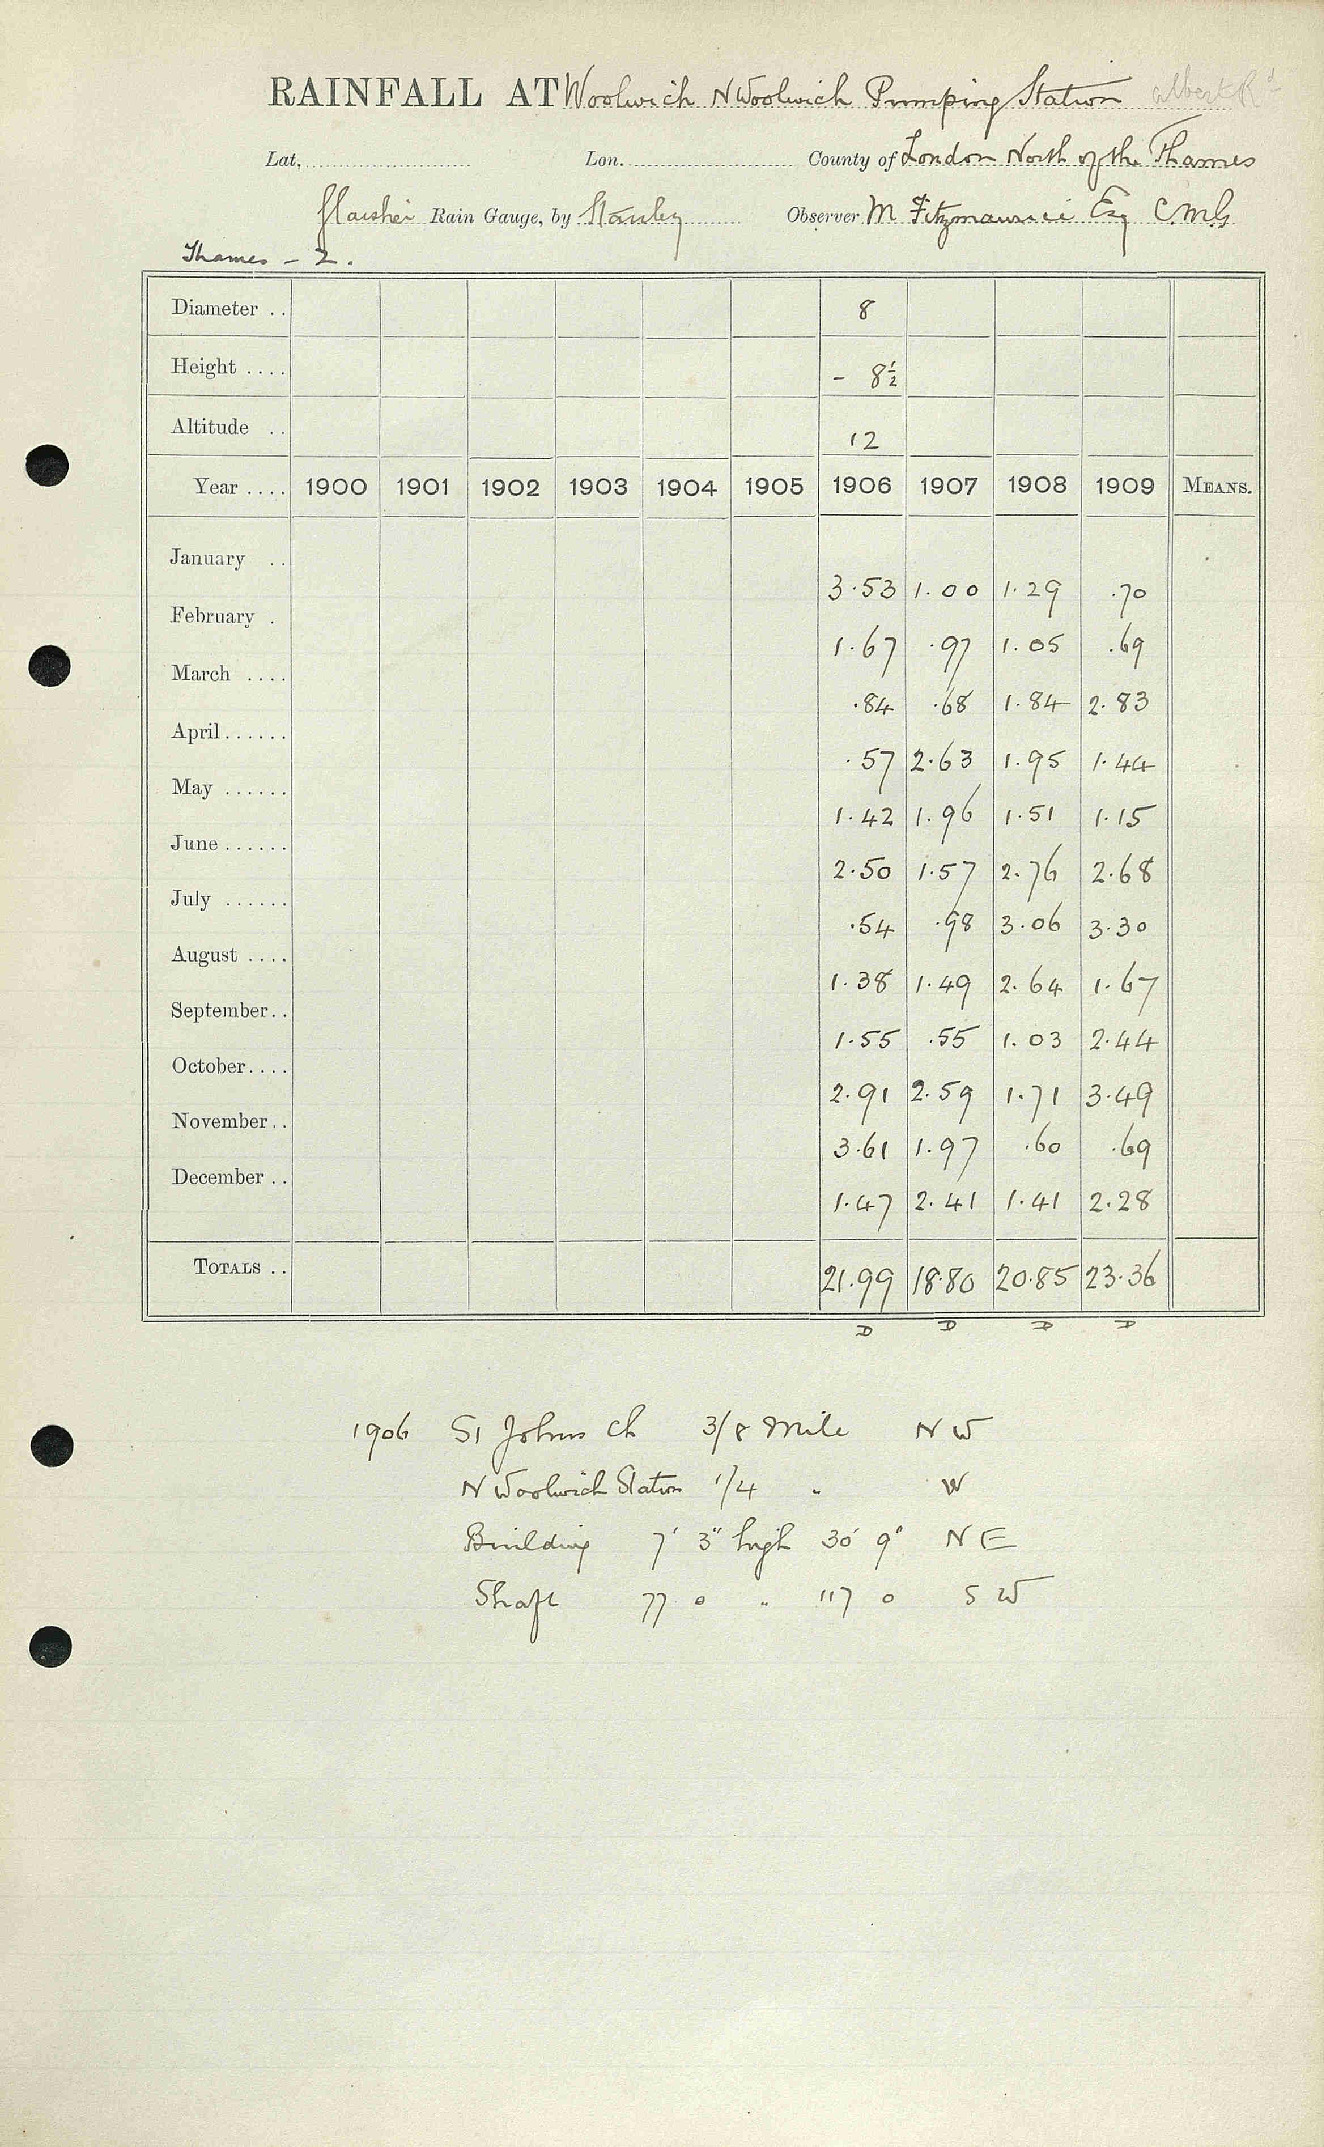 RAINFALL AT Woolwich N Woolwich Pumping Station Albert Rd
Lat. Lon. County of London North of the Thames
Glaisher Rain Gauge, by Stanley Observer M Fitzmaurice Esq C.M.G
Thames - 2.
Diameter .. 8
Height .... - 8½
Altitude .. 12
Year .... 1900 1901 1902 1903 1904 1905 1906 1907 1908 1909 MEANS.
January .. 3.53 1.00 1.29 .70
February . 1.67 .97 1.05 .69
March .... .84 .68 1.84 2.83
April ...... .57 2.63 1.95 1.44
May ...... 1.42 1.96 1.51 1.15
June ...... 2.50 1.57 2.76 2.68
July ...... .54 .98 3.06 3.30
August .... 1.38 1.49 2.64 1.67
September.. 1.55 .55 1.03 2.44
October.... 2.91 2.59 1.71 3.49
November.. 3.61 1.97 .60 .69
December .. 1.47 2.41 1.41 2.28
TOTALS .. 21.99 18.80 20.85 23.36
D D D D
1906 St Johns Ch 3/8 Mile N W
N Woolwich Station 1/4 " W
Building 7' 3" high 30' 9" N E
Shaft 77 0 " 117 0 S W